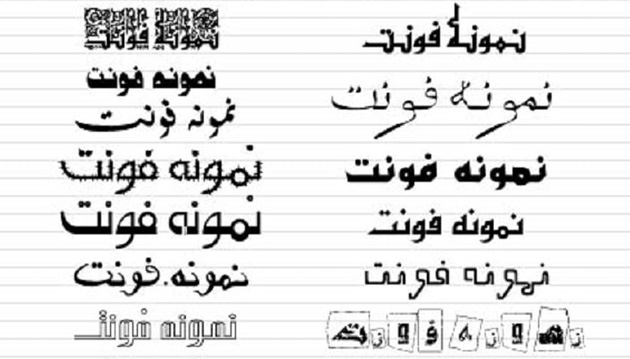 نمونه فونت
نمونه فونت
نمونه فونت
نمونه فونت
نمونه فونت
نمونه فونت
نمونه فونت
نمونه فونت
نمونه فونت
نمونه فونت
نمونه فونت
نمونه.فونت
نمونه فونت